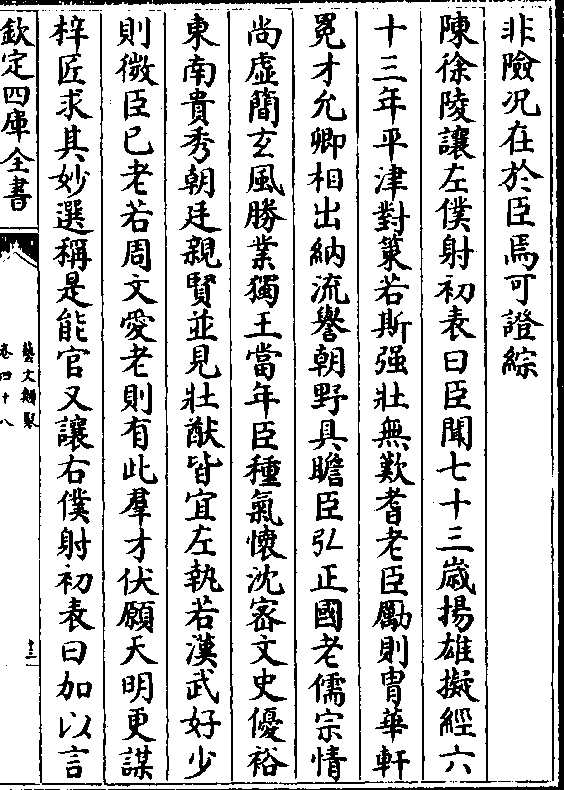 非險况在於臣焉可證綜
陳徐陵讓左僕射初表曰臣聞七十三歲揚雄擬經六
十三年平津對策若斯强壯無歎耆老臣勵則冑華軒
冕才允卿相出納流譽朝野具瞻臣弘正國老儒宗情
尚虛簡玄風勝業獨王當年臣種氣懷沈密文史優裕
東南貴秀朝廷親賢並見壯猷皆宜左執若漢武好少
則微臣已老若周文愛老則有此羣才伏願天明更謀
梓匠求其妙選稱是能官又讓右僕射初表曰加以言
欽定四庫全書
藝文類聚
卷四十八
十三